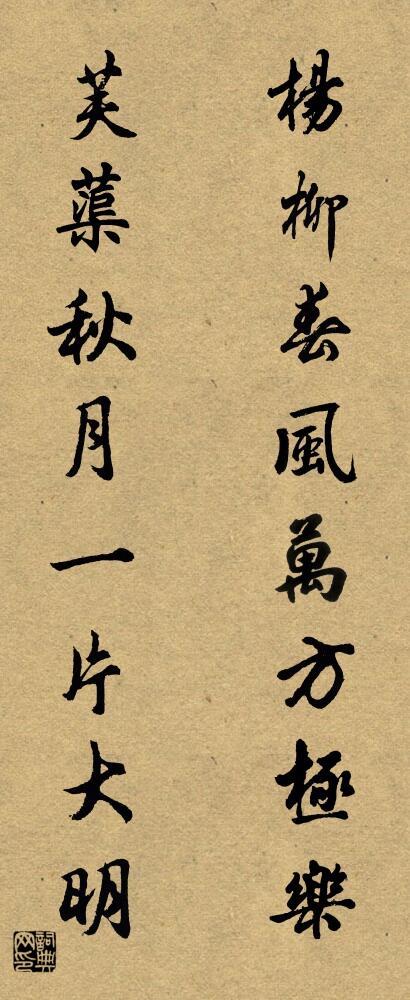 楊柳春風萬方極樂
芙蕖秋月一片大明
詞典网印